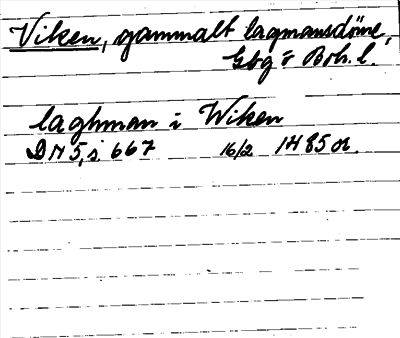 Viken, gammalt lagmansdöme,
Gbg o Boh. l.
laghman i Wiken
DN 5, s 667 16/2 1485 or.